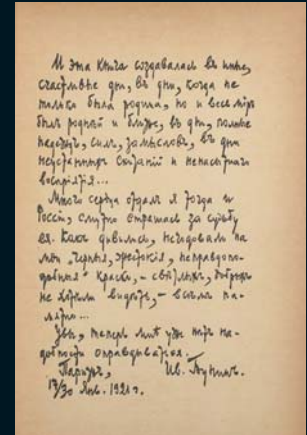 И эта книга создавалась въ иные,
счастливые дни, въ дни, когда не
только была родина, но и весь міръ
былъ родней и ближе, въ дни, полные
надеждъ, силъ, замысловъ, въ дни
неустанныхъ скитаній и ненасытнаго
воспріятія...
Много сердца отдалъ я тогда и
Россіи, смутно страшась за судьбу
ея. Какъ дивились, негодовали на
мои „черныя, жестокія, неправдопо-
добныя“ краски, – свѣтлыхъ, добрыхъ
не хотѣли видѣть, – всѣмъ па-
мятно...
Увы, теперь мнѣ уже нѣтъ на-
добности оправдываться.
Парижъ, Ив. Бунинъ.
17/30 Янв. 1921 г.